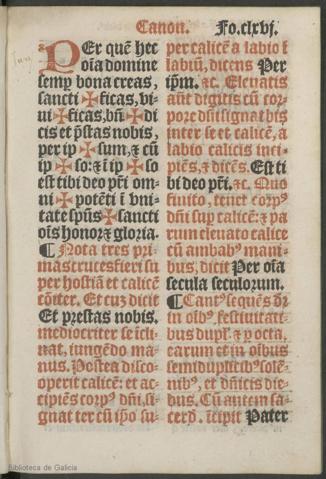 Canon. Fo.clxvj.
PEr quē hec
oīa domine
semp bona creas,
sancti ✠ ficas, vi-
ui ✠ ficas, bñ ✠ di
cis et pr̄stas nobis,
per ip ✠ sum, & cū
ip ✠ so: & ī ip ✠ so
est tibi deo pr̄i om-
ni ✠ potēti ī vni-
tate spūs ✠ sancti
oīs honor & gloria.
¶ Nota tres pri
mas cruces fieri su
per hostiā et calicē
cōiter. Et cuz dicit
Et prestas nobis.
mediocriter se īcli-
nat, iungēdo ma-
nus. Postea disco-
operit calicē: et ac-
cipiēs corpꝰ dñi, si-
gnat ter cū ip̄o su-
per calicē a labio ī
labiū, dicens Per
ip̄m. &c. Eleuatis
aūt digitis cū cor-
pore dñi signat bis
inter se et calicē, a
labio calicis inci-
piēs, & dicēs. Est ti
bi deo pr̄i. &c. Quo
finito, tenet corpꝰ
dñi sup calicē: & pa
rum eleuato calice
cū ambabꝰ mani-
bus, dicit Per oīa
secula seculorum.
¶ Cantꝰ sequēs dr̄
in oībꝰ festiuitati-
bus dupl. & p octa.
earum et in oībus
semiduplicibꝰ solē-
nibꝰ, et dñicis die-
bus. Cū autem sa-
cerd. īcipit Pater
Biblioteca de Galicia